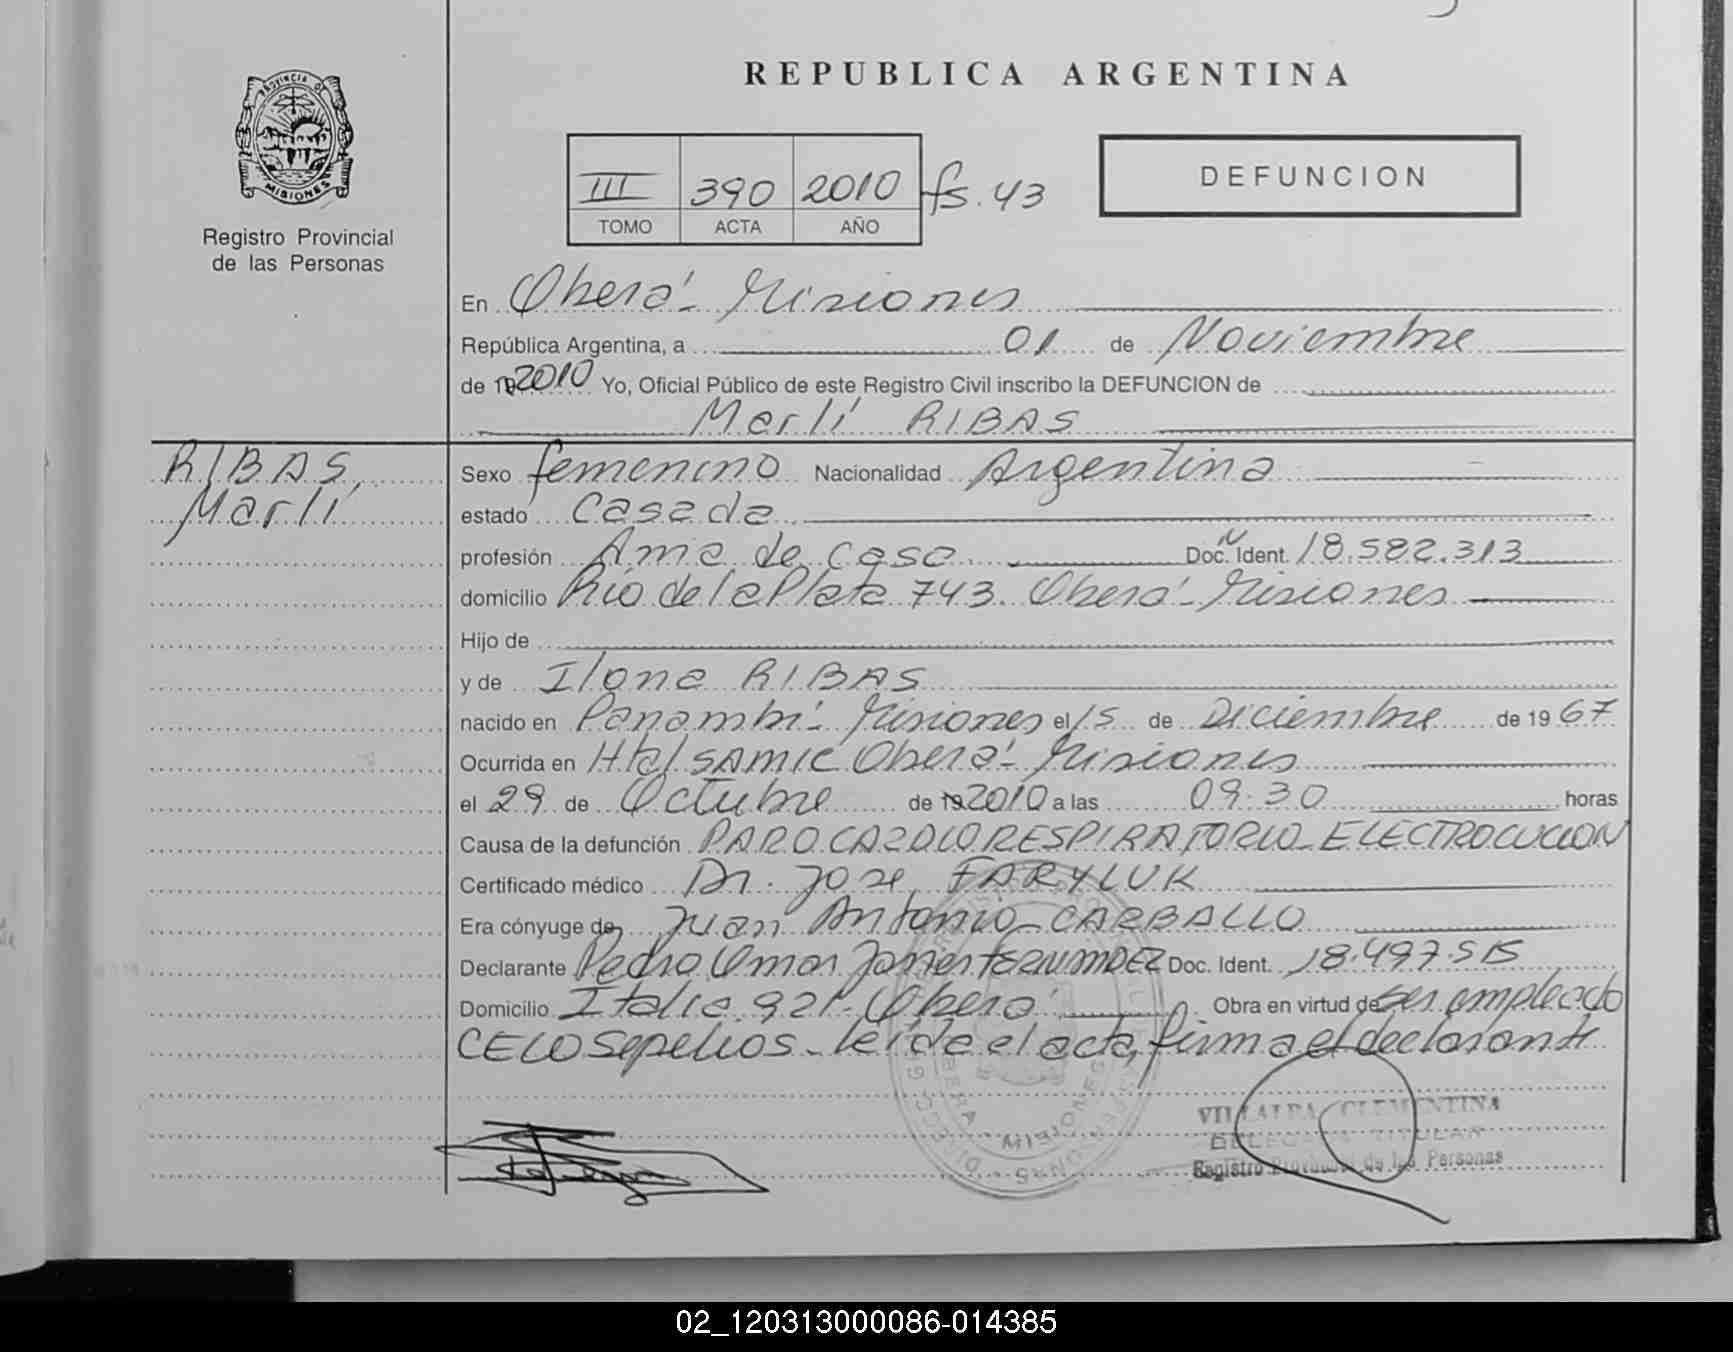 PROVINCIA DE
MISIONES
Registro Provincial
de las Personas
REPUBLICA ARGENTINA
III 390 2010 fs. 43
TOMO ACTA AÑO
DEFUNCION
En Oberá - Misiones
República Argentina, a 01 de Noviembre
de 19 2010 Yo, Oficial Público de este Registro Civil inscribo la DEFUNCION de
Marlí RIBAS
RIBAS,
Marlí
Sexo femenino Nacionalidad Argentina
estado Casada
profesión Ama de casa Doc. N Ident. 18.582.313
domicilio Río de la Plata 743. Oberá - Misiones
Hijo de
y de Ilona RIBAS
nacido en Panambí - Misiones el 15 de Diciembre de 1967
Ocurrida en Htal SAMIC Oberá - Misiones
el 29 de Octubre de 19 2010 a las 09:30 horas
Causa de la defunción PARO CARDIO RESPIRATORIO - ELECTROCUCION
Certificado médico Dr. Jose FARYLUK
Era cónyuge de Juan Antonio CARBALLO
Declarante Pedro Omar FERNANDEZ Doc. Ident. 18.497.515
Domicilio Italia 921 - Oberá Obra en virtud de ser empleado
CELO Sepelios - leída el acta, firma el declarante
VILLALBA CLEMENTINA
DELEGADA TITULAR
Registro Provincial de las Personas
02_120313000086-014385